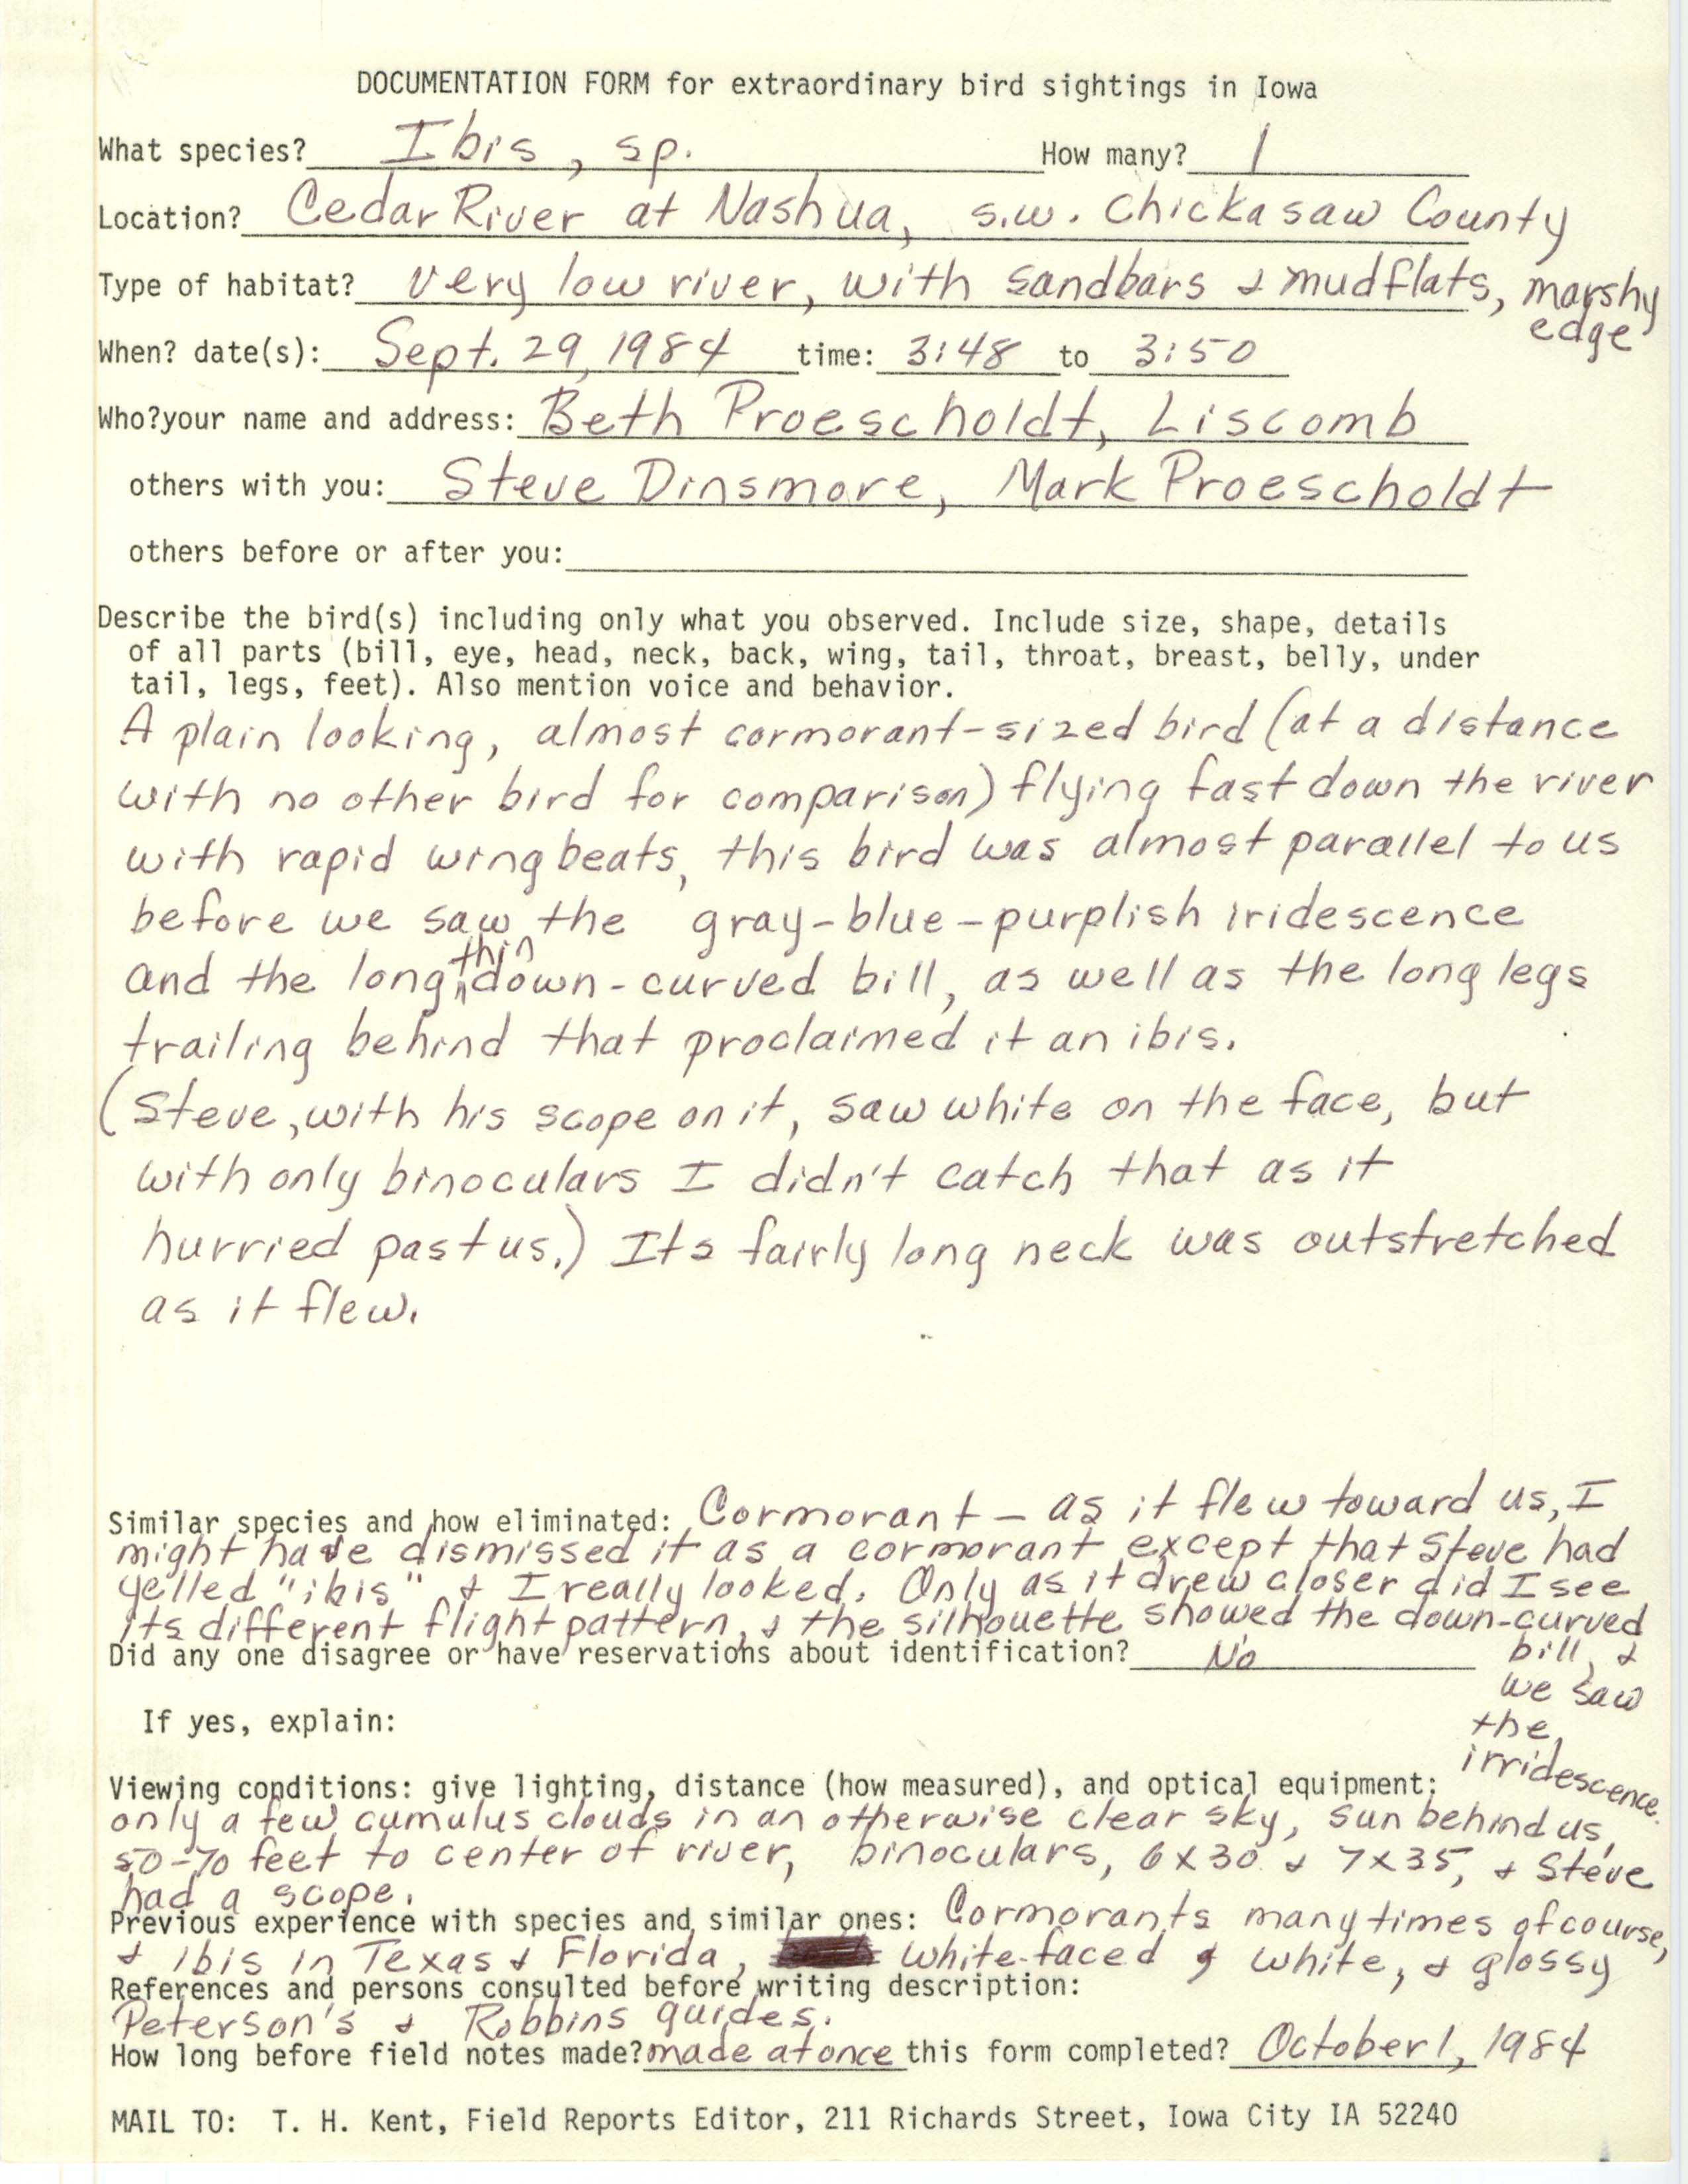 DOCUMENTATION FORM for extraordinary bird sightings in Iowa
What species? Ibis, sp. How many? 1
Location? Cedar River at Nashua, s.w. Chickasaw County
Type of habitat? very low river, with sandbars & mudflats, marshy
edge
When? date(s): Sept. 29, 1984 time: 3:48 to 3:50
Who?your name and address: Beth Proescholdt, Liscomb
others with you: Steve Dinsmore, Mark Proescholdt
others before or after you:
Describe the bird(s) including only what you observed. Include size, shape, details
of all parts (bill, eye, head, neck, back, wing, tail, throat, breast, belly, under
tail, legs, feet). Also mention voice and behavior.
A plain looking, almost cormorant-sized bird (at a distance
with no other bird for comparison) flying fast down the river
with rapid wingbeats, this bird was almost parallel to us
before we saw the gray-blue-purplish iridescence
thin
and the long, down-curved bill, as well as the long legs
trailing behind that proclaimed it an ibis.
(Steve, with his scope on it, saw white on the face, but
with only binoculars I didn't catch that as it
hurried past us.) Its fairly long neck was outstretched
as it flew.
Similar species and how eliminated: Cormorant - as it flew toward us, I
might have dismissed it as a cormorant except that Steve had
yelled "ibis" & I really looked. Only as it drew closer did I see
its different flight pattern, & the silhouette showed the down-curved
Did any one disagree or have reservations about identification? No
bill, &
we saw
the
irridescence.
If yes, explain:
Viewing conditions: give lighting, distance (how measured), and optical equipment:
only a few cumulus clouds in an otherwise clear sky, sun behind us,
50-70 feet to center of river, binoculars, 6x30 & 7x35, & Steve
had a scope.
Previous experience with species and similar ones: Cormorants many times of course,
& ibis in Texas & Florida, white-faced & white, & glossy
References and persons consulted before writing description:
Peterson's & Robbins guides.
How long before field notes made? made at once this form completed? October 1, 1984
MAIL TO: T. H. Kent, Field Reports Editor, 211 Richards Street, Iowa City IA 52240